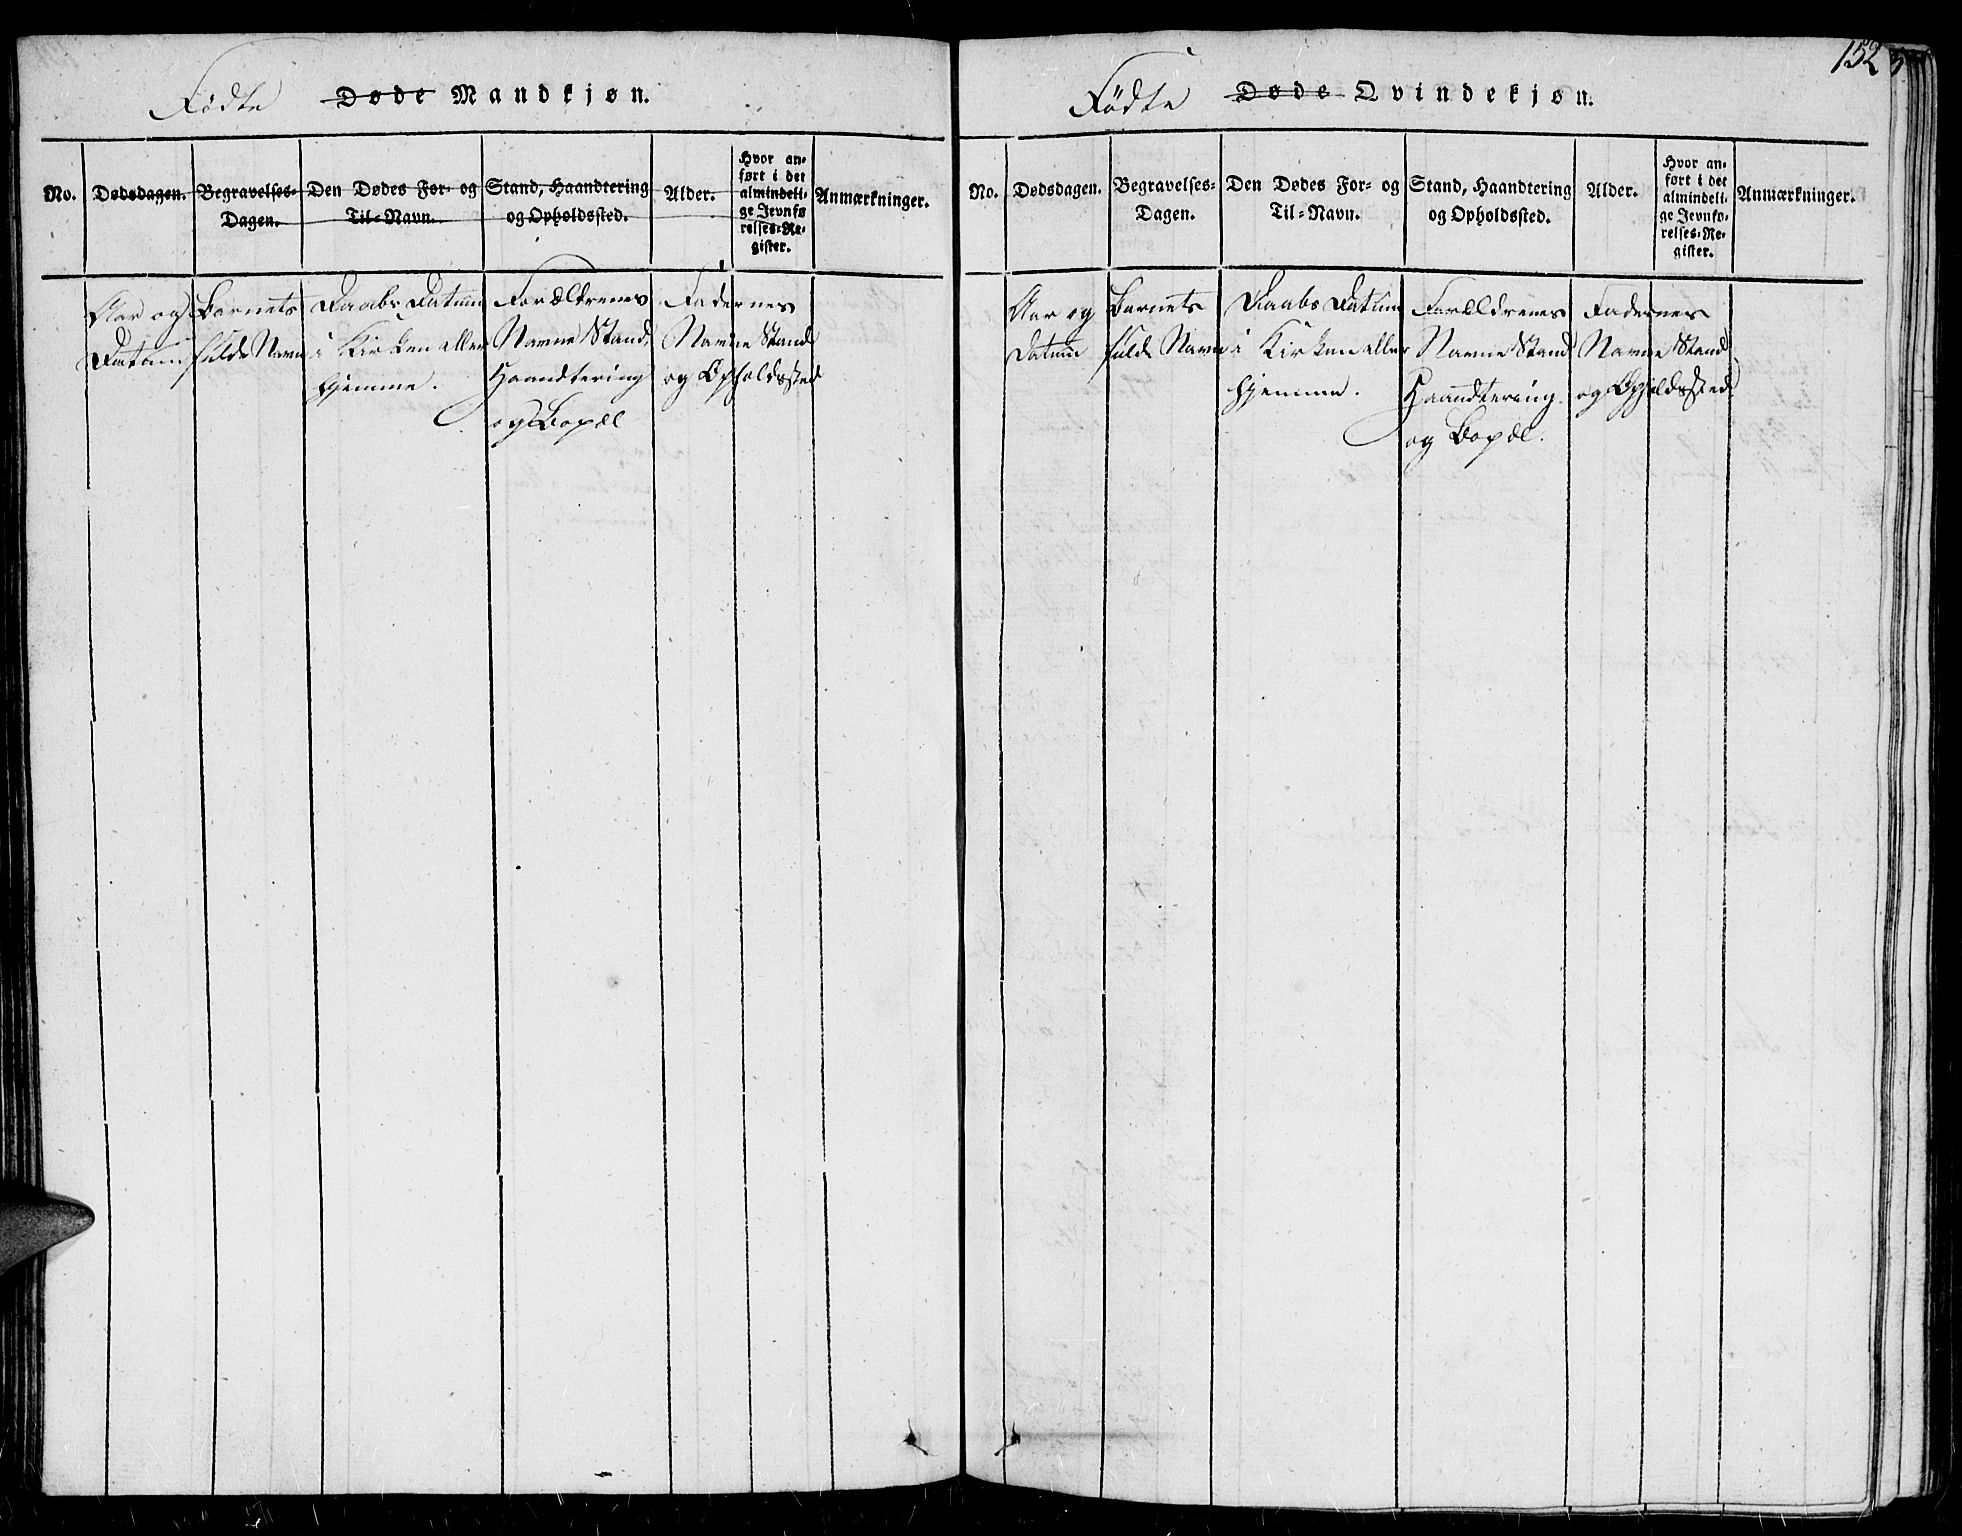 Födte Døde Mandkjøn.
No.
Dødsdagen.
Begravelses-
Dagen.
Den Dødes For- og
Til-Navn.
Stand, Haandtering
og Opholdssted.
Alder.
Hvor an-
ført i det
almindeli-
ge Jevnfø
relses-Re-
gister.
Anmærkninger.
Aar og
Datum
Barnets
fulde Navn
Daabs Datum
i Kirken eller
hjemme.
Forældrenes
Navne Stand,
Haandtering
og Bopæl
Fadernes
Navne Stand
og Opholdssted
152
Födte Døde Qvindekjøn.
No.
Dødsdagen.
Begravelses-
Dagen.
Den Dødes For- og
Til-Navn.
Stand, Haandtering
og Opholdssted.
Alder.
Hvor an-
ført i det
almindeli-
ge Jevnfø-
relses-Re-
gister.
Anmærkninger.
Aar og
Datum
Barnets
fulde Navn
Daabs Datum
i Kirken eller
hjemme.
Forældrenes
Navne Stand
Haandtering
og Bopæl.
Fadernes
Navne Stand
og Opholdssted